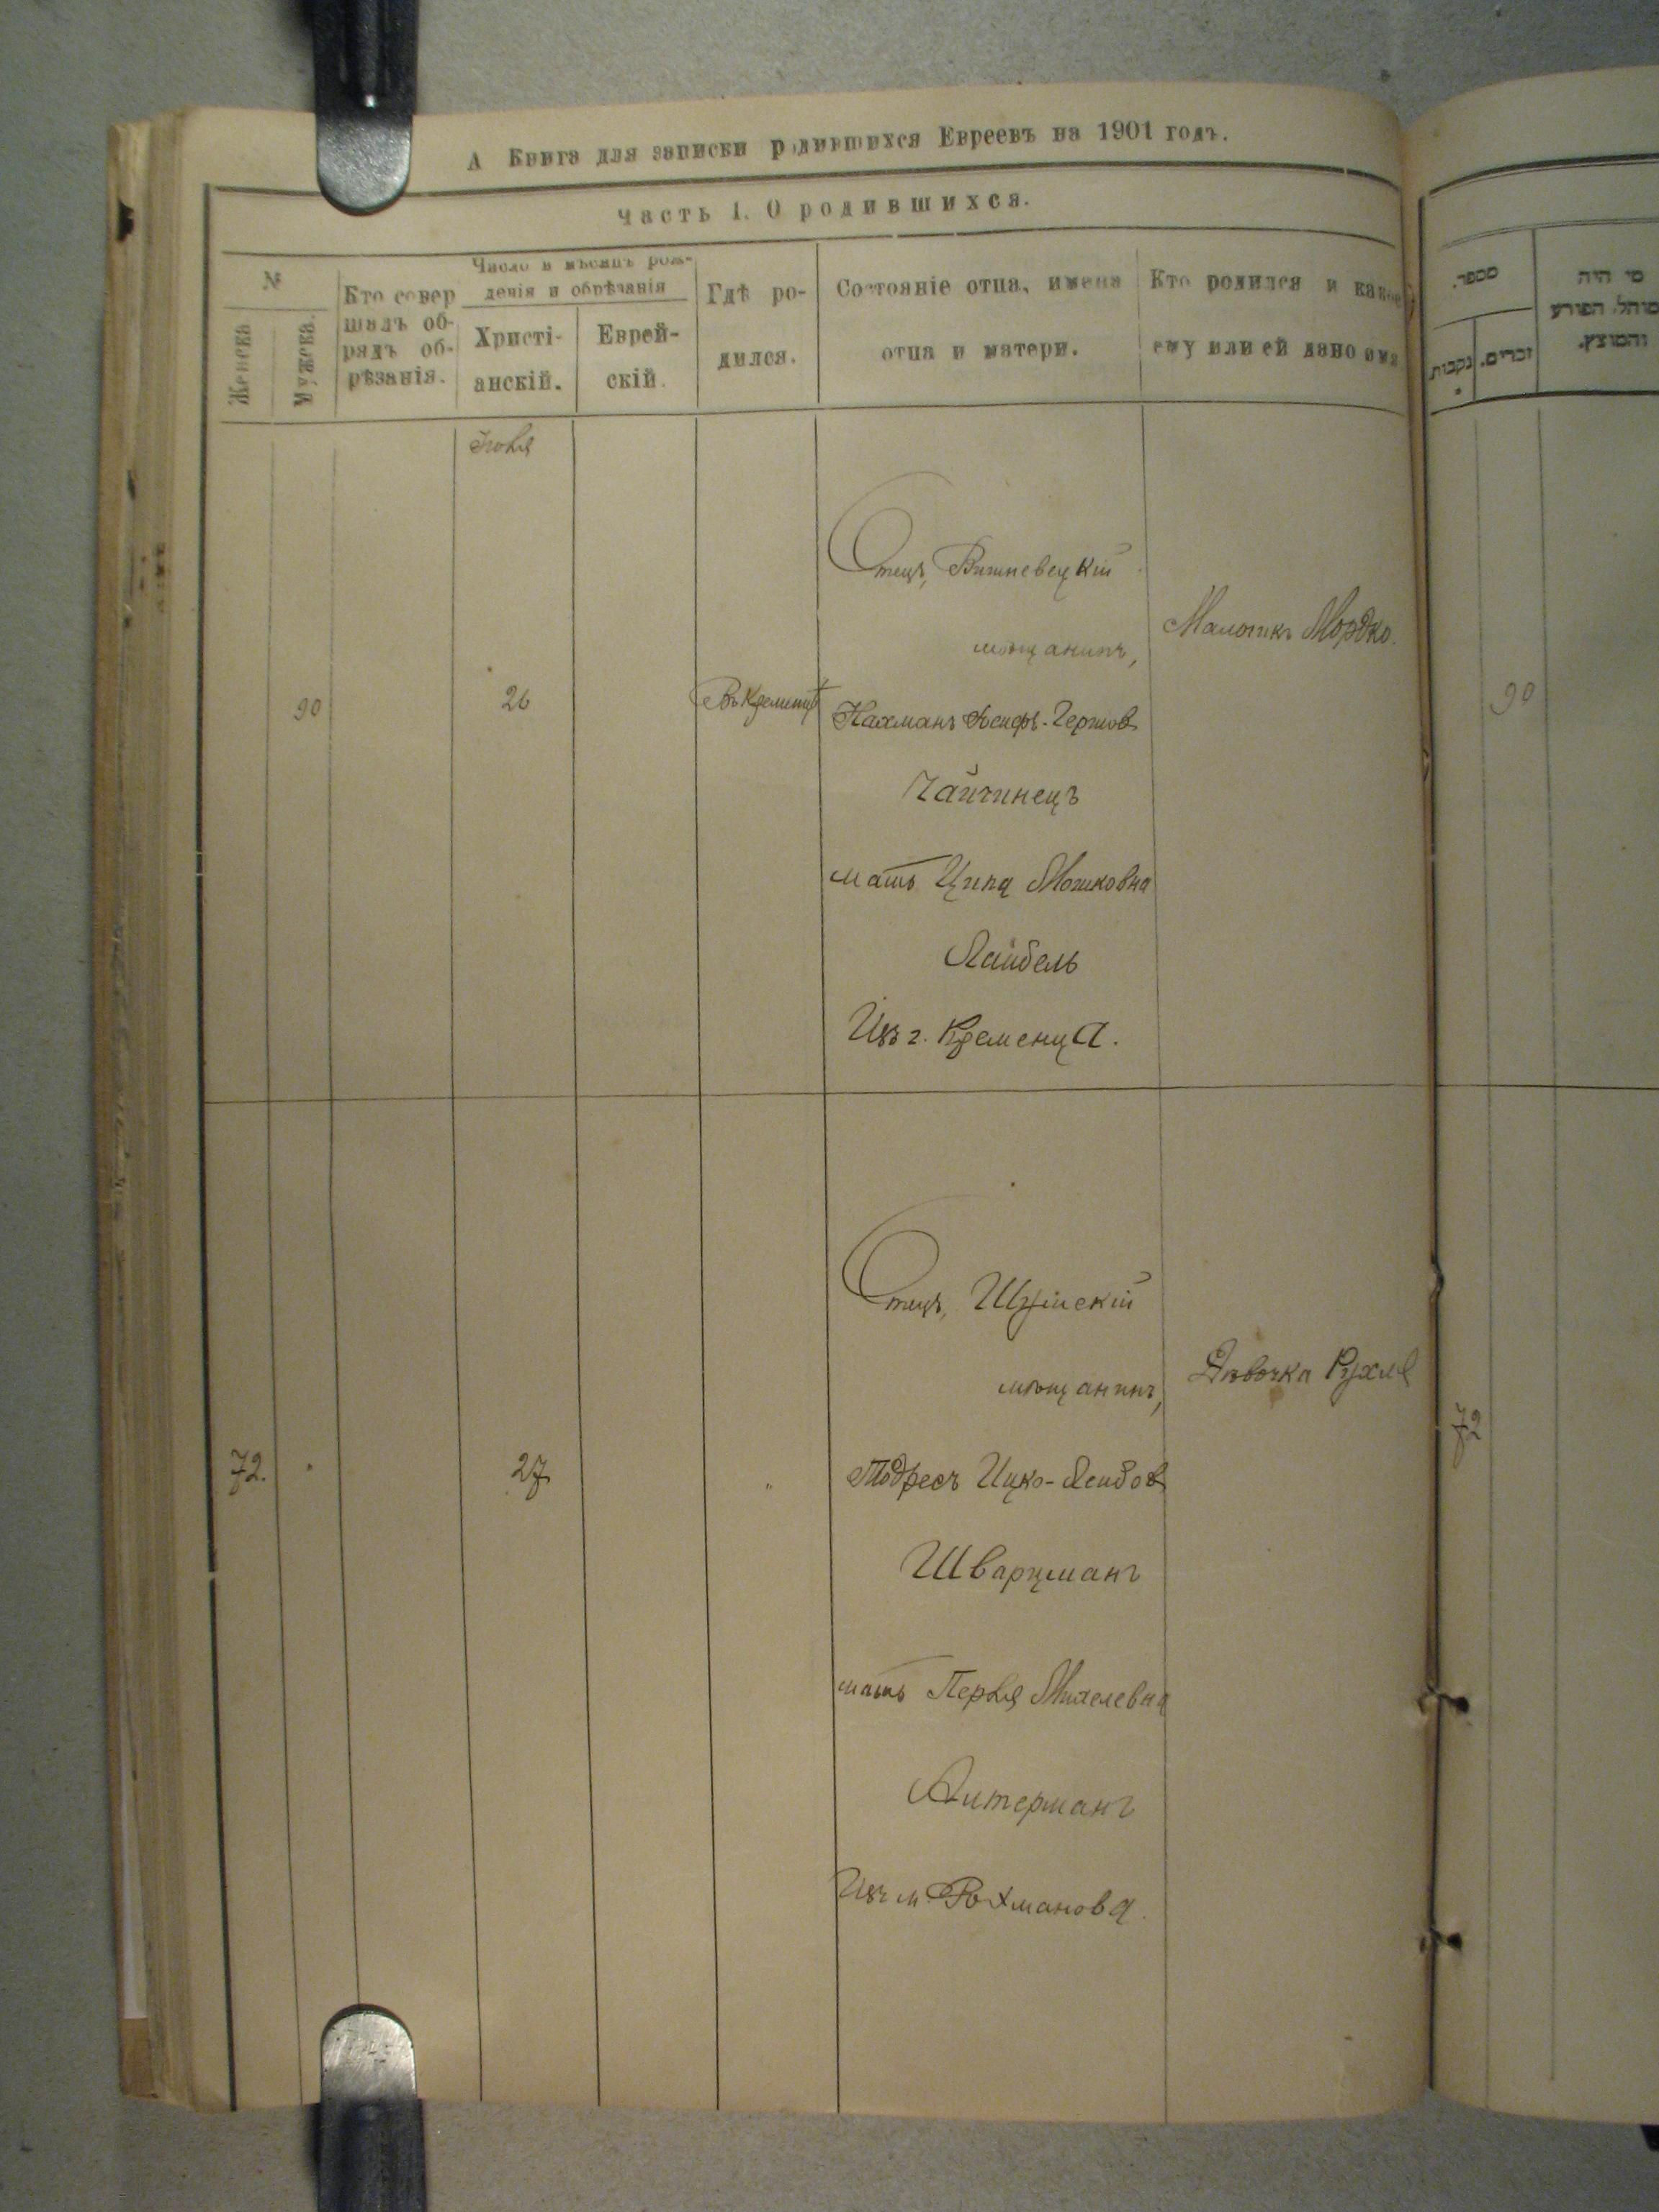 А Книга для записки родившихся Евреевъ на 1901 годъ.
Часть 1. О родившихся.
№
Женска
Мужеска.
Кто совер
шалъ об-
рядъ об-
рѣзанія.
Число и мѣсяцъ рож-
денія и обрѣзанія
Христі-
анскій.
Еврей-
скій.
Гдѣ ро-
дился.
Состояніе отца, имена
отца и матери.
Кто родился и какое
ему или ей дано имя
מספר.
נקבות
זכרים.
מי היה
מוהל הפורע
והמוצץ.
Іюля
90
26
Въ Кременцѣ
Отецъ, Вишневецкій
мѣщанинъ,
Нахманъ Іосифъ-Гершов
Чайчинецъ
мать Ципа Мошковна
Лайбель
Изъ г. Кременца.
Мальчикъ Мордко.
90
72.
27
"
Отецъ, Шумскій
мѣщанинъ,
Тодресъ Ицко-Лейбов
Шварцманъ
мать Перля Михелевна
Альтерманъ
Изъ м. Рохманова.
Дѣвочка Рухля
72